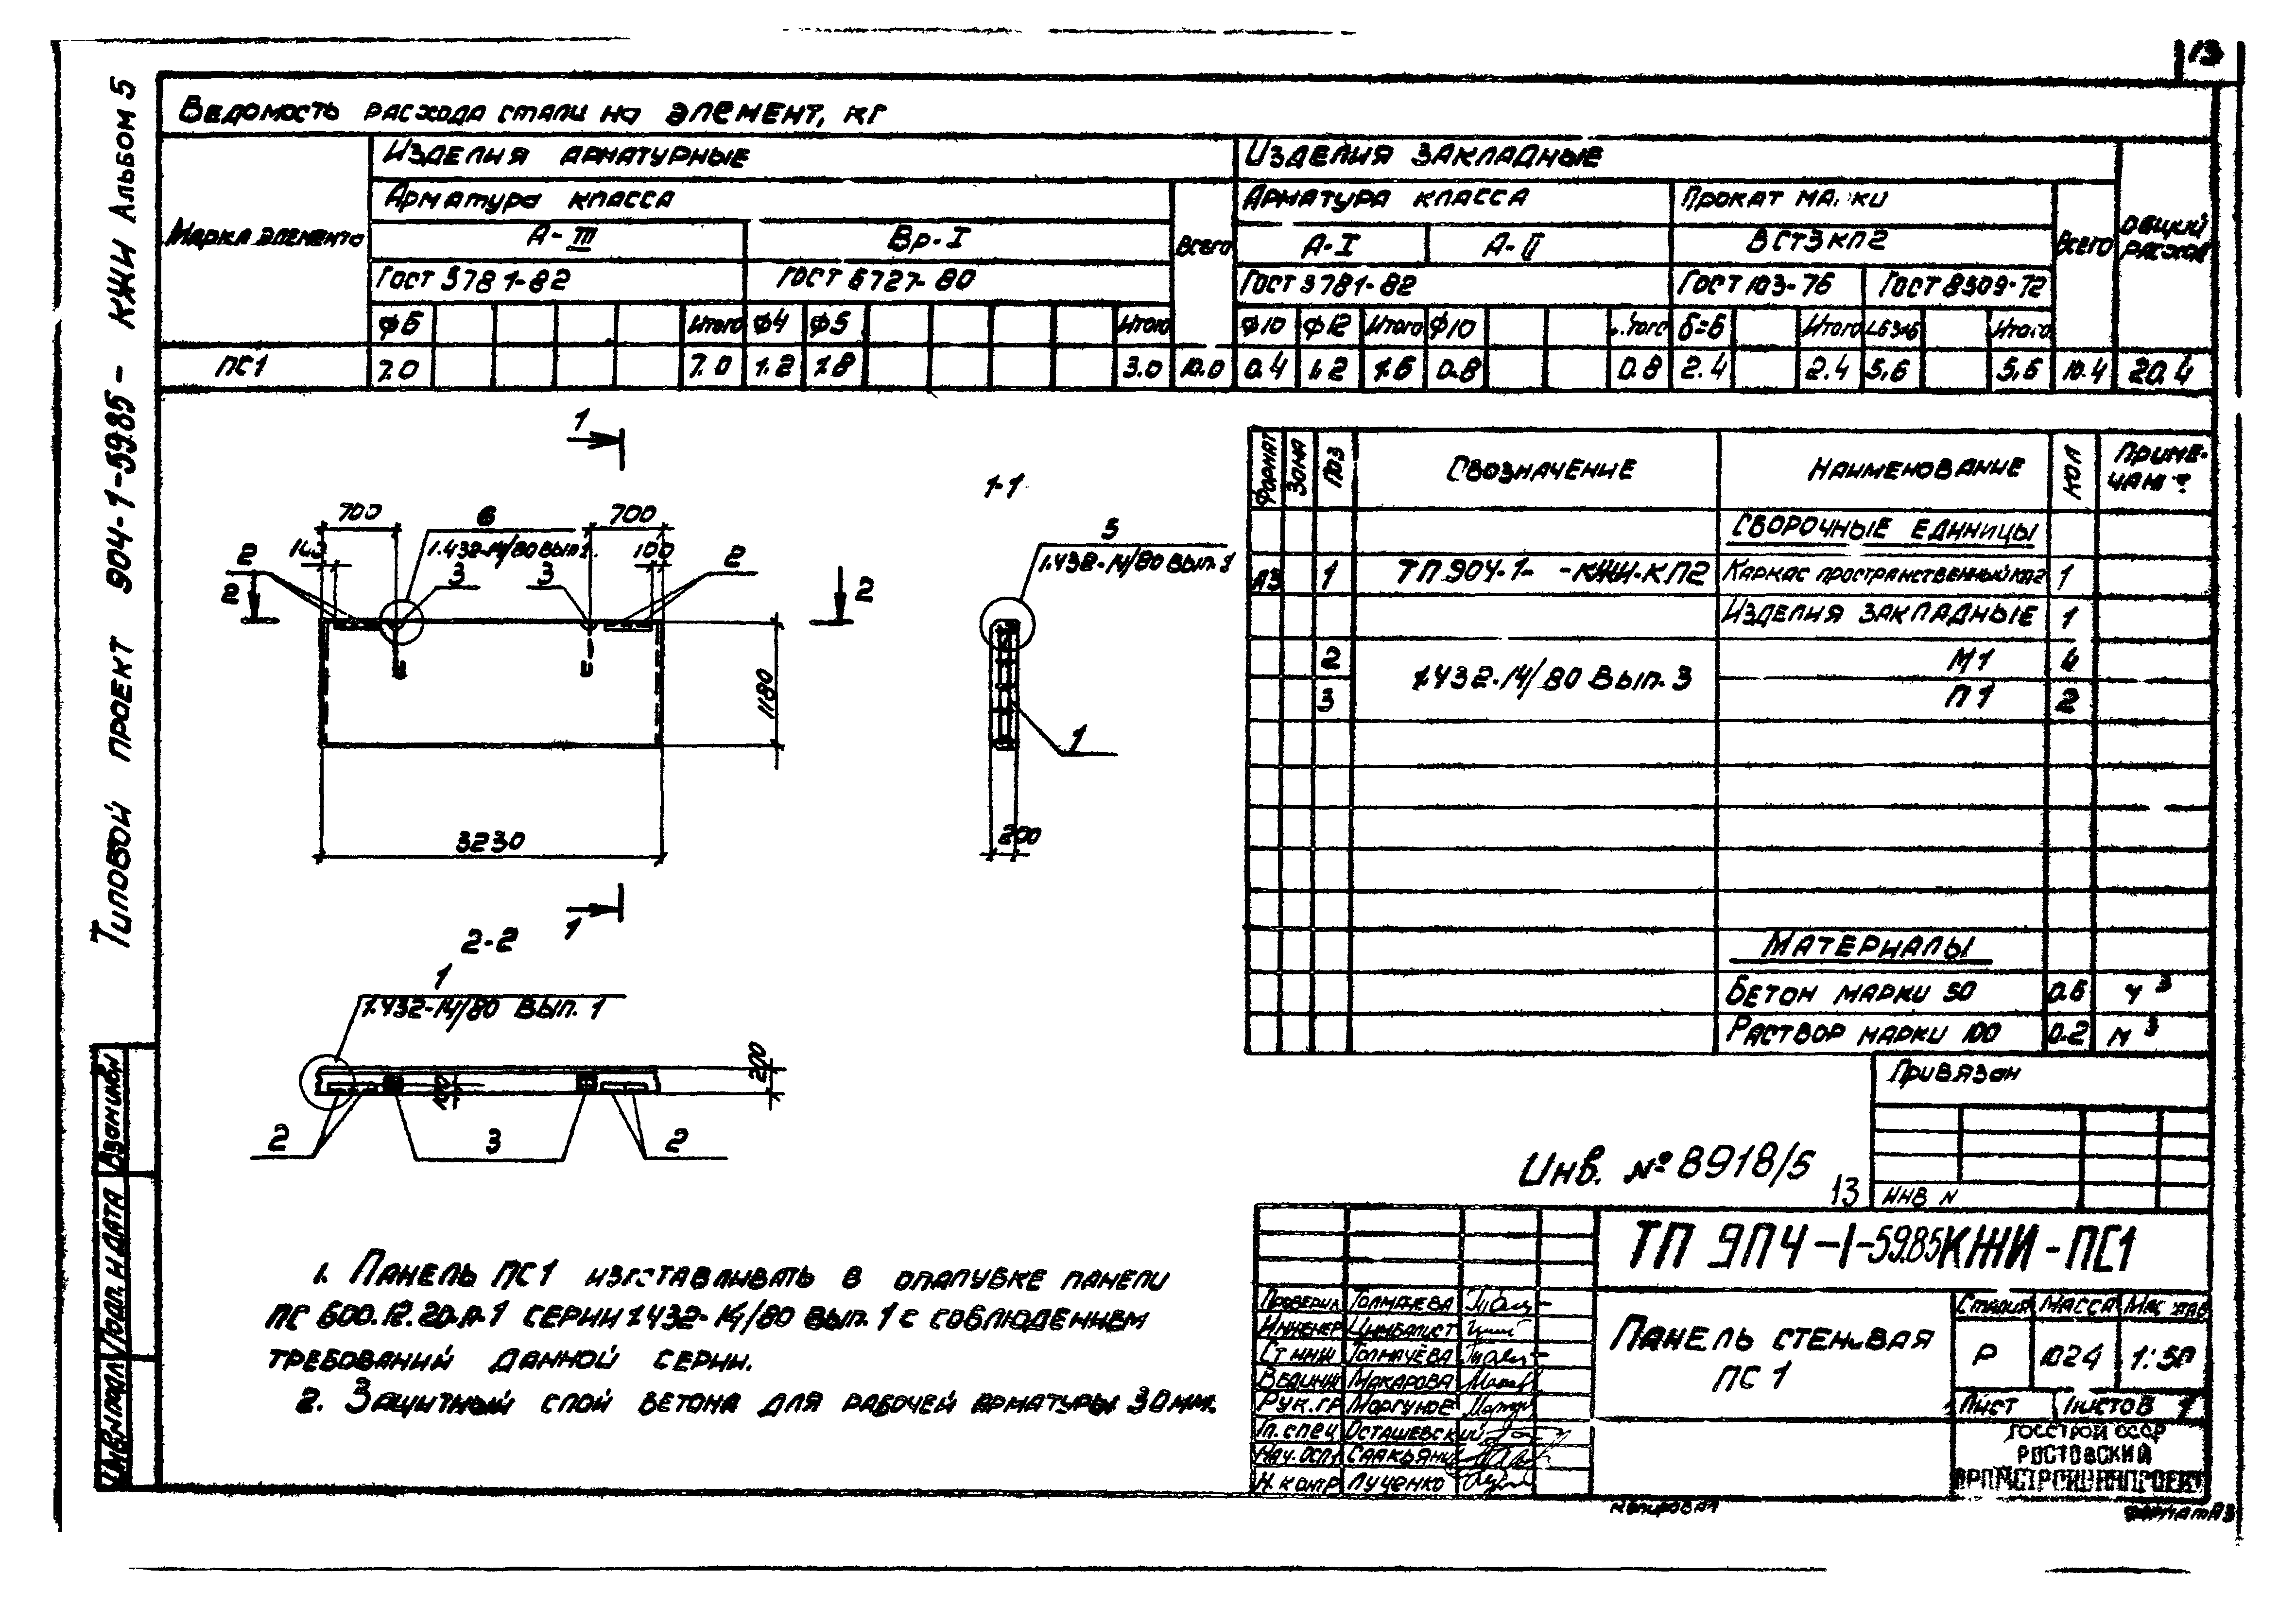 13
Типовой проект 904-1-59.85 - КЖИ Альбом 5
Ведомость расхода стали на элемент, кг
Марка элемента
Изделия арматурные
Изделия закладные
Общий расход
Арматура класса
Всего
Арматура класса
Прокат марки
Всего
А-III
Вр-I
А-I
А-II
ВСт3кп2
Гост 5781-82
Гост 6727-80
Гост 5781-82
Гост 103-76
Гост 8509-72
ф6 Итого ф4 ф5 Итого ф10 ф12 Итого ф10 Итого δ=6 Итого L63×6 Итого
ПС1 7.0 7.0 1.2 1.8 3.0 10.0 0.4 1.2 1.6 0.8 0.8 2.4 2.4 5,6 5,6 10.4 20.4
1
1-1
700
6
1.432-14/80 вып.
700
100
2
3
3
2
2
2
5
1.432-14/80 вып. 1
1180
1
3230
200
1
2-2
1
1.432-14/80 вып. 1
200
100
2
3
2
Формат Зона Поз Обозначение Наименование Кол Примечание
Сборочные единицы
А3 1 ТП 904-1- -КЖИ-КП2 Каркас пространственный КП2 1
Изделия закладные 1
2 М1 4
1.432-14/80 Вып. 3
3 П1 2
Материалы
Бетон марки 50 0.6 м³
Раствор марки 100 0.2 м³
Привязан
Инв. № 8918/5
13
Инв N
1. Панель ПС1 изготавливать в опалубке панели
ПС 600.12.20-п-1 серии 1.432-14/80 вып. 1 с соблюдением
требований данной серии.
2. Защитный слой бетона для рабочей арматуры 30мм.
ТП 904-1-59.85 КЖИ-ПС1
Проверил Толмачева
Инженер Цимбалист
Ст инж Толмачёва
Вед инж Макарова
Рук.гр Моргунов
Гл.спец Осташевский
Нач.
Саакьянц
Н.контр Луценко
Панель стеновая
ПС1
Стадия Масса Масштаб
Р 1024 1:50
Лист Листов 1
Госстрой СССР
Ростовский
Промстройниипроект
Копировал
Формат А3
Инв.N подл Подп. и дата Взам инв